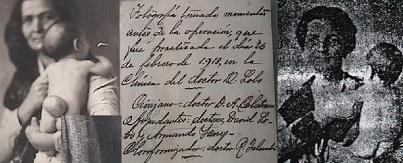 Fotografía tomada momentos
antes de la operacion, que
fue practicada el día 26
de febrero de 1918, en la
Clinica del doctor R. Lobo
Cirujano: doctor D. A.
Ayudantes: doctores David Lo-
bo y Armando
Cloroformizador: doctor R.